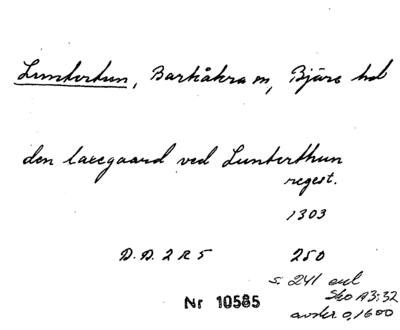 Lunterten, Barkåkra sn, Bjäre hd
den laxegaard ved Lunterthun
regest.
1303
D.D. 2 R 5 250
s. 241 enl
Sko A3:32
avskr o, 1600
Nr 10585